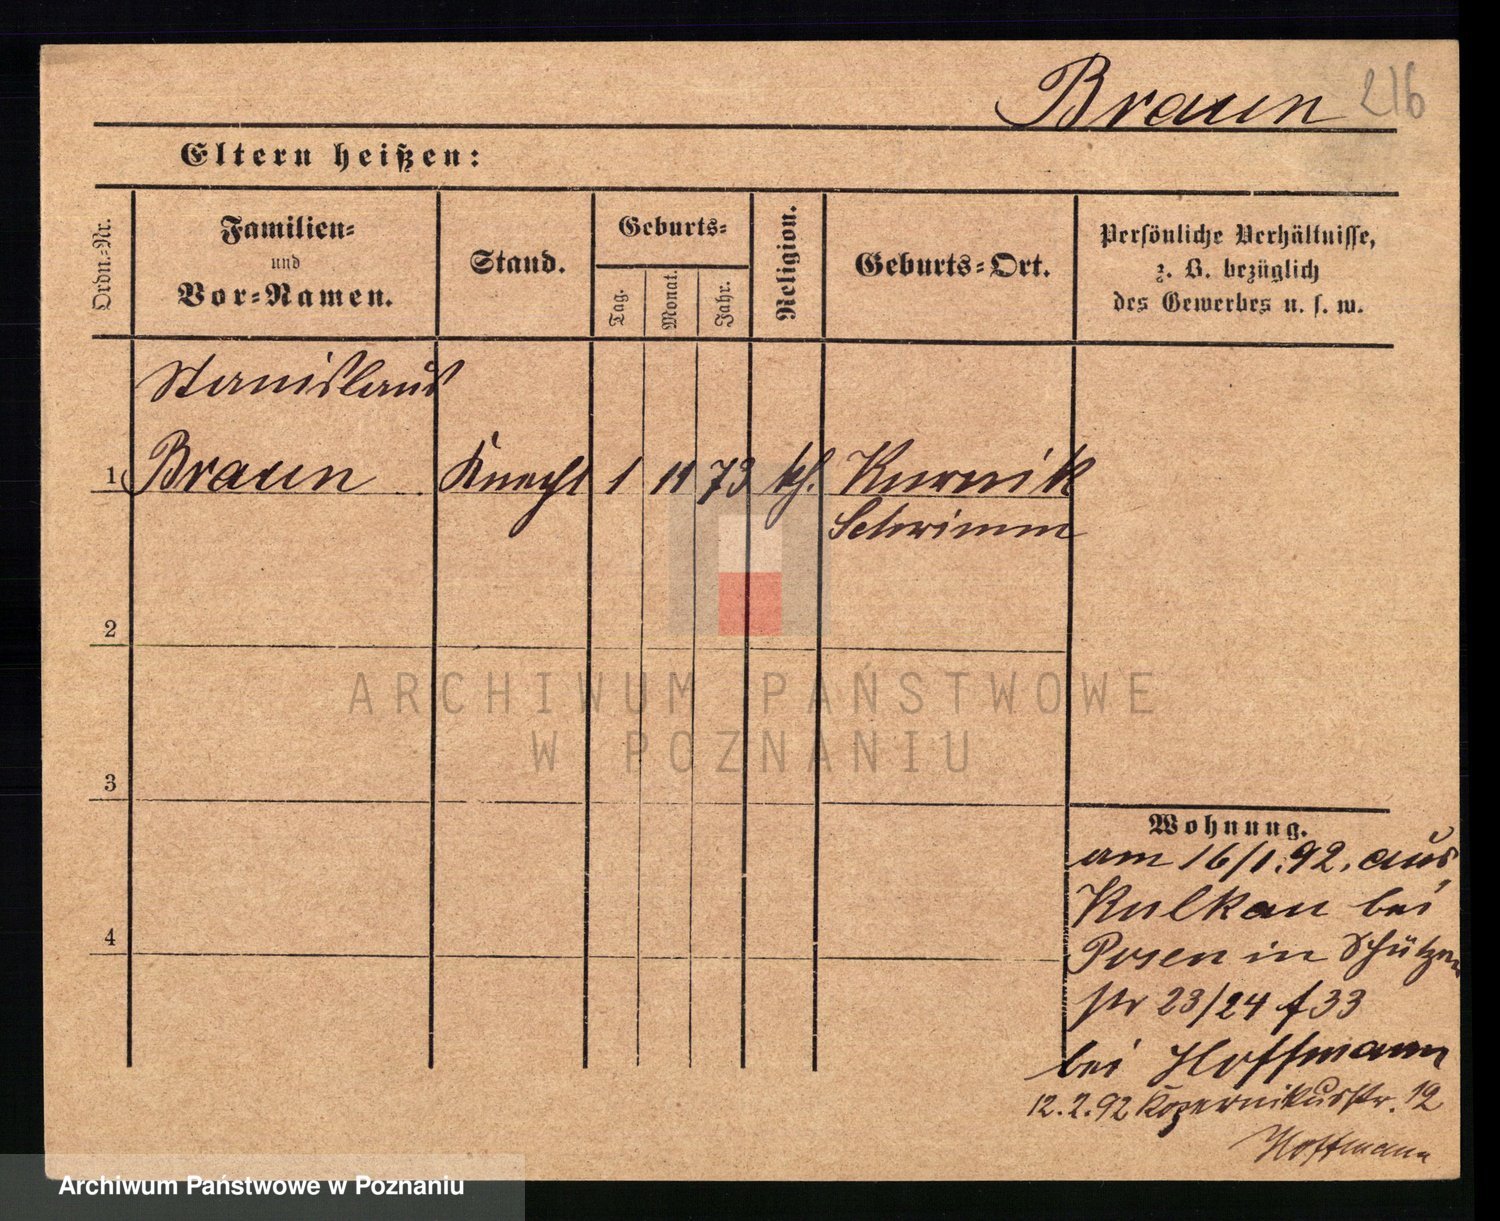 Braun 216
Eltern heißen:
Ordn.-Nr.
Familien-
und
Vor-Namen.
Stand.
Geburts-
Tag.
Monat.
Jahr.
Religion.
Geburts-Ort.
Persönliche Verhältnisse,
z. B. bezüglich
des Gewerbes u. s. w.
Stanislaus
1 Braun Knecht 1 11 73 kth. Kurnik
Schrimm
2
3
4
Wohnung.
am 16/1.92. aus
Kulkau bei
Posen in Schützen
str 23/24 f 33
bei Hoffmann
12.2.92 Kopernikusstr. 12
Hoffmann
ARCHIWUM PAŃSTWOWE
W POZNANIU
Archiwum Państwowe w Poznaniu